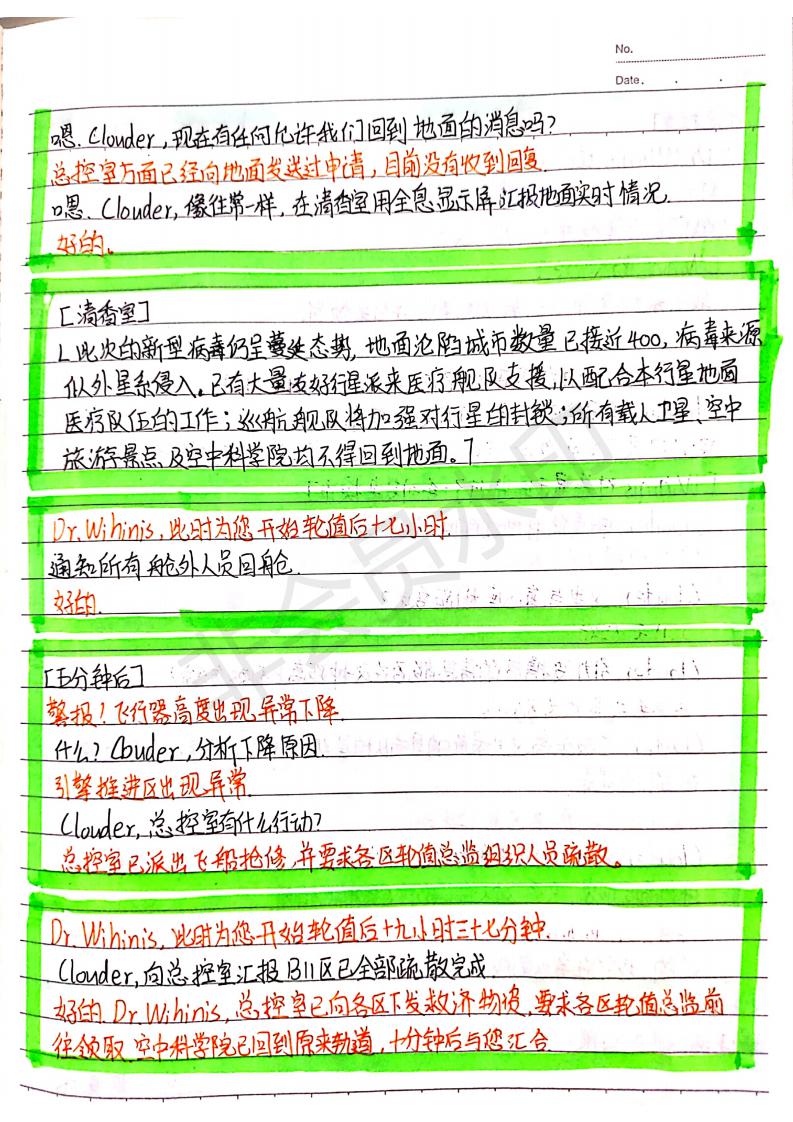 No.
Date. . .
嗯. Clouder, 现在有任何允许我们回到地面的消息吗?
总控室方面已经向地面发送过申请, 目前没有收到回复.
嗯. Clouder, 像往常一样, 在清香室用全息显示屏汇报地面实时情况.
好的。
[清香室]
「此次的新型病毒仍呈蔓延态势, 地面沦陷城市数量已接近400, 病毒来源
似外星系侵入。已有大量友好行星派来医疗舰队支援, 以配合本行星地面
医疗队伍的工作; 巡航舰队将加强对行星的封锁; 所有载人卫星、空中
旅游景点及空中科学院均不得回到地面。」
Dr. Wihinis, 此时为您开始轮值后十七小时.
通知所有舱外人员回舱.
好的.
[五分钟后]
警报! 飞行器高度出现异常下降.
什么? Clouder, 分析下降原因.
引擎推进区出现异常.
Clouder, 总控室有什么行动?
总控室已派出飞船抢修, 并要求各区轮值总监组织人员疏散。
Dr. Wihinis, 此时为您开始轮值后十九小时三十七分钟.
Clouder, 向总控室汇报B11区已全部疏散完成.
好的. Dr. Wihinis, 总控室已向各区下发救济物资, 要求各区轮值总监前
往领取. 空中科学院已回到原来轨道, 十分钟后与您汇合.
非会员水印